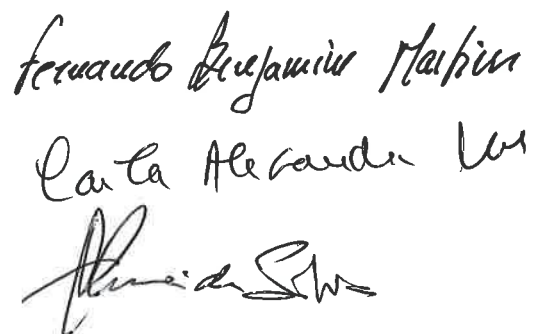 Fernando Benjamim Martins
Carla Alexandra
Almeida Silva